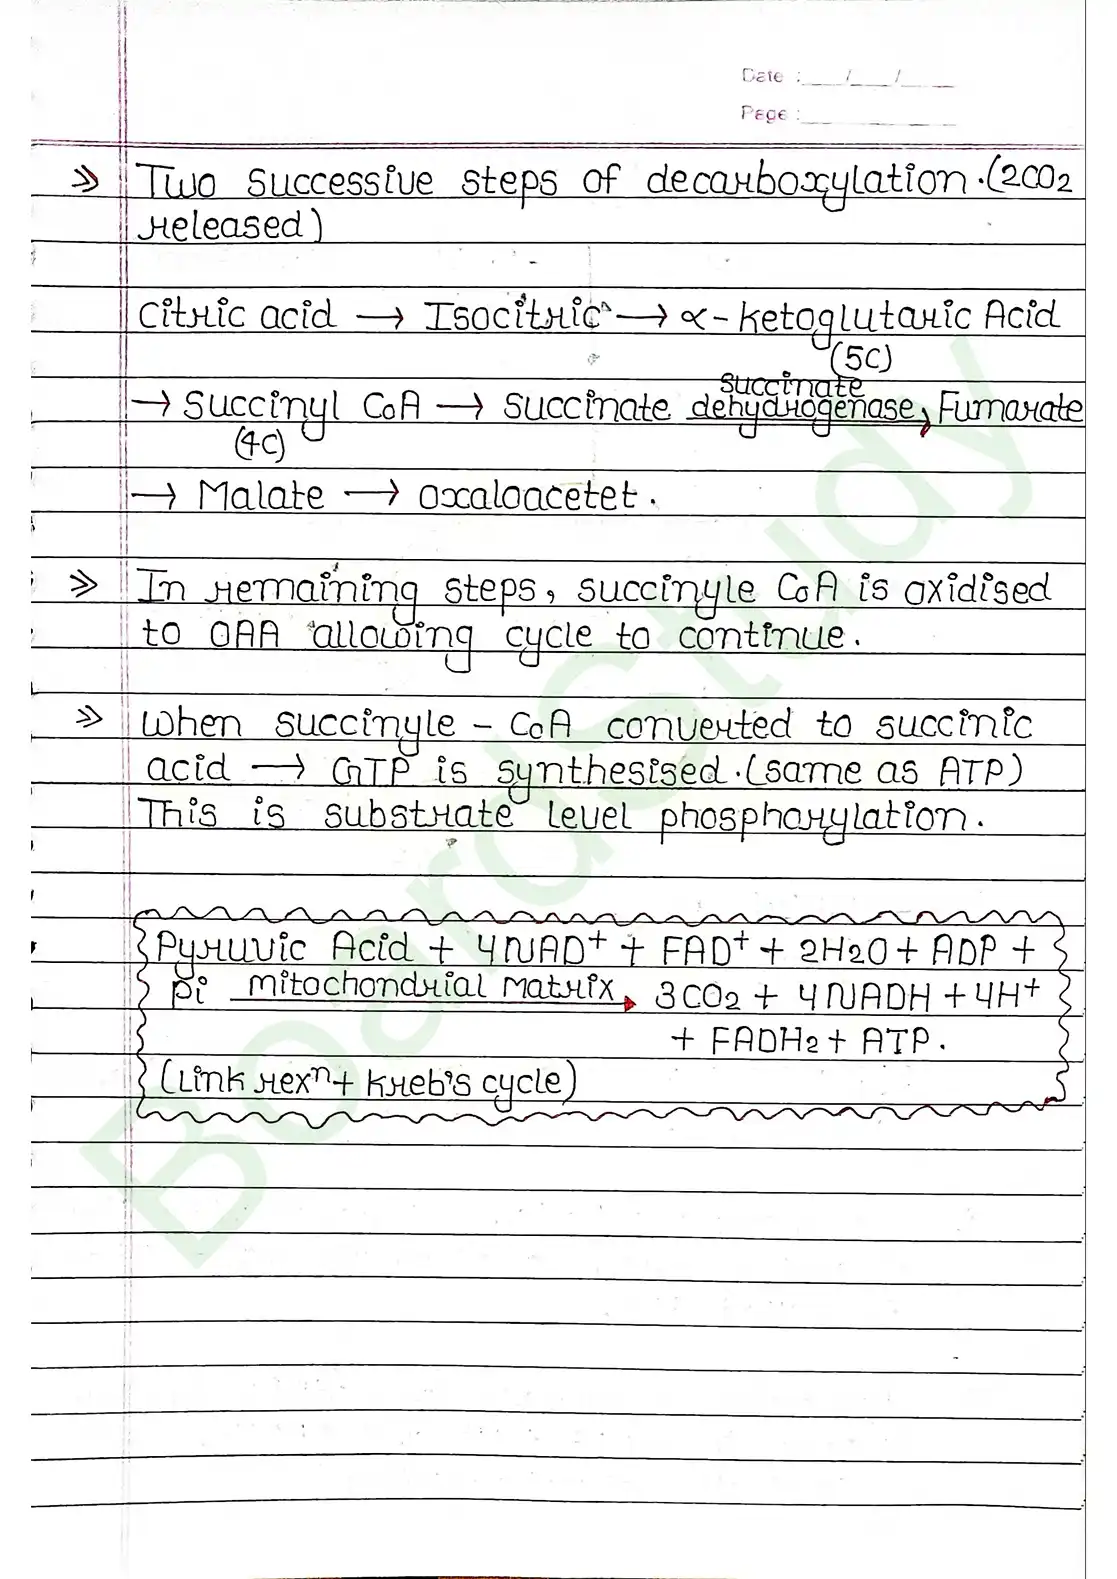 Date : __/__/__
Page : ____
» Two successive steps of decarboxylation. (2CO2
released)
Citric acid → Isocitric → α- ketoglutaric Acid
(5C)
→ Succinyl CoA → Succinate succinate dehydrogenase Fumarate
(4C)
→ Malate → oxaloacetet.
» In remaining steps, succinyle CoA is oxidised
to OAA allowing cycle to continue.
» When succinyle - CoA converted to succinic
acid → GTP is synthesised. (same as ATP)
This is substrate level phosphorylation.
Pyruvic Acid + 4NAD+ + FAD+ + 2H2O + ADP +
Pi mitochondrial matrix 3CO2 + 4NADH + 4H+
+ FADH2 + ATP.
(Link rexn + kreb's cycle)
BoardStudy